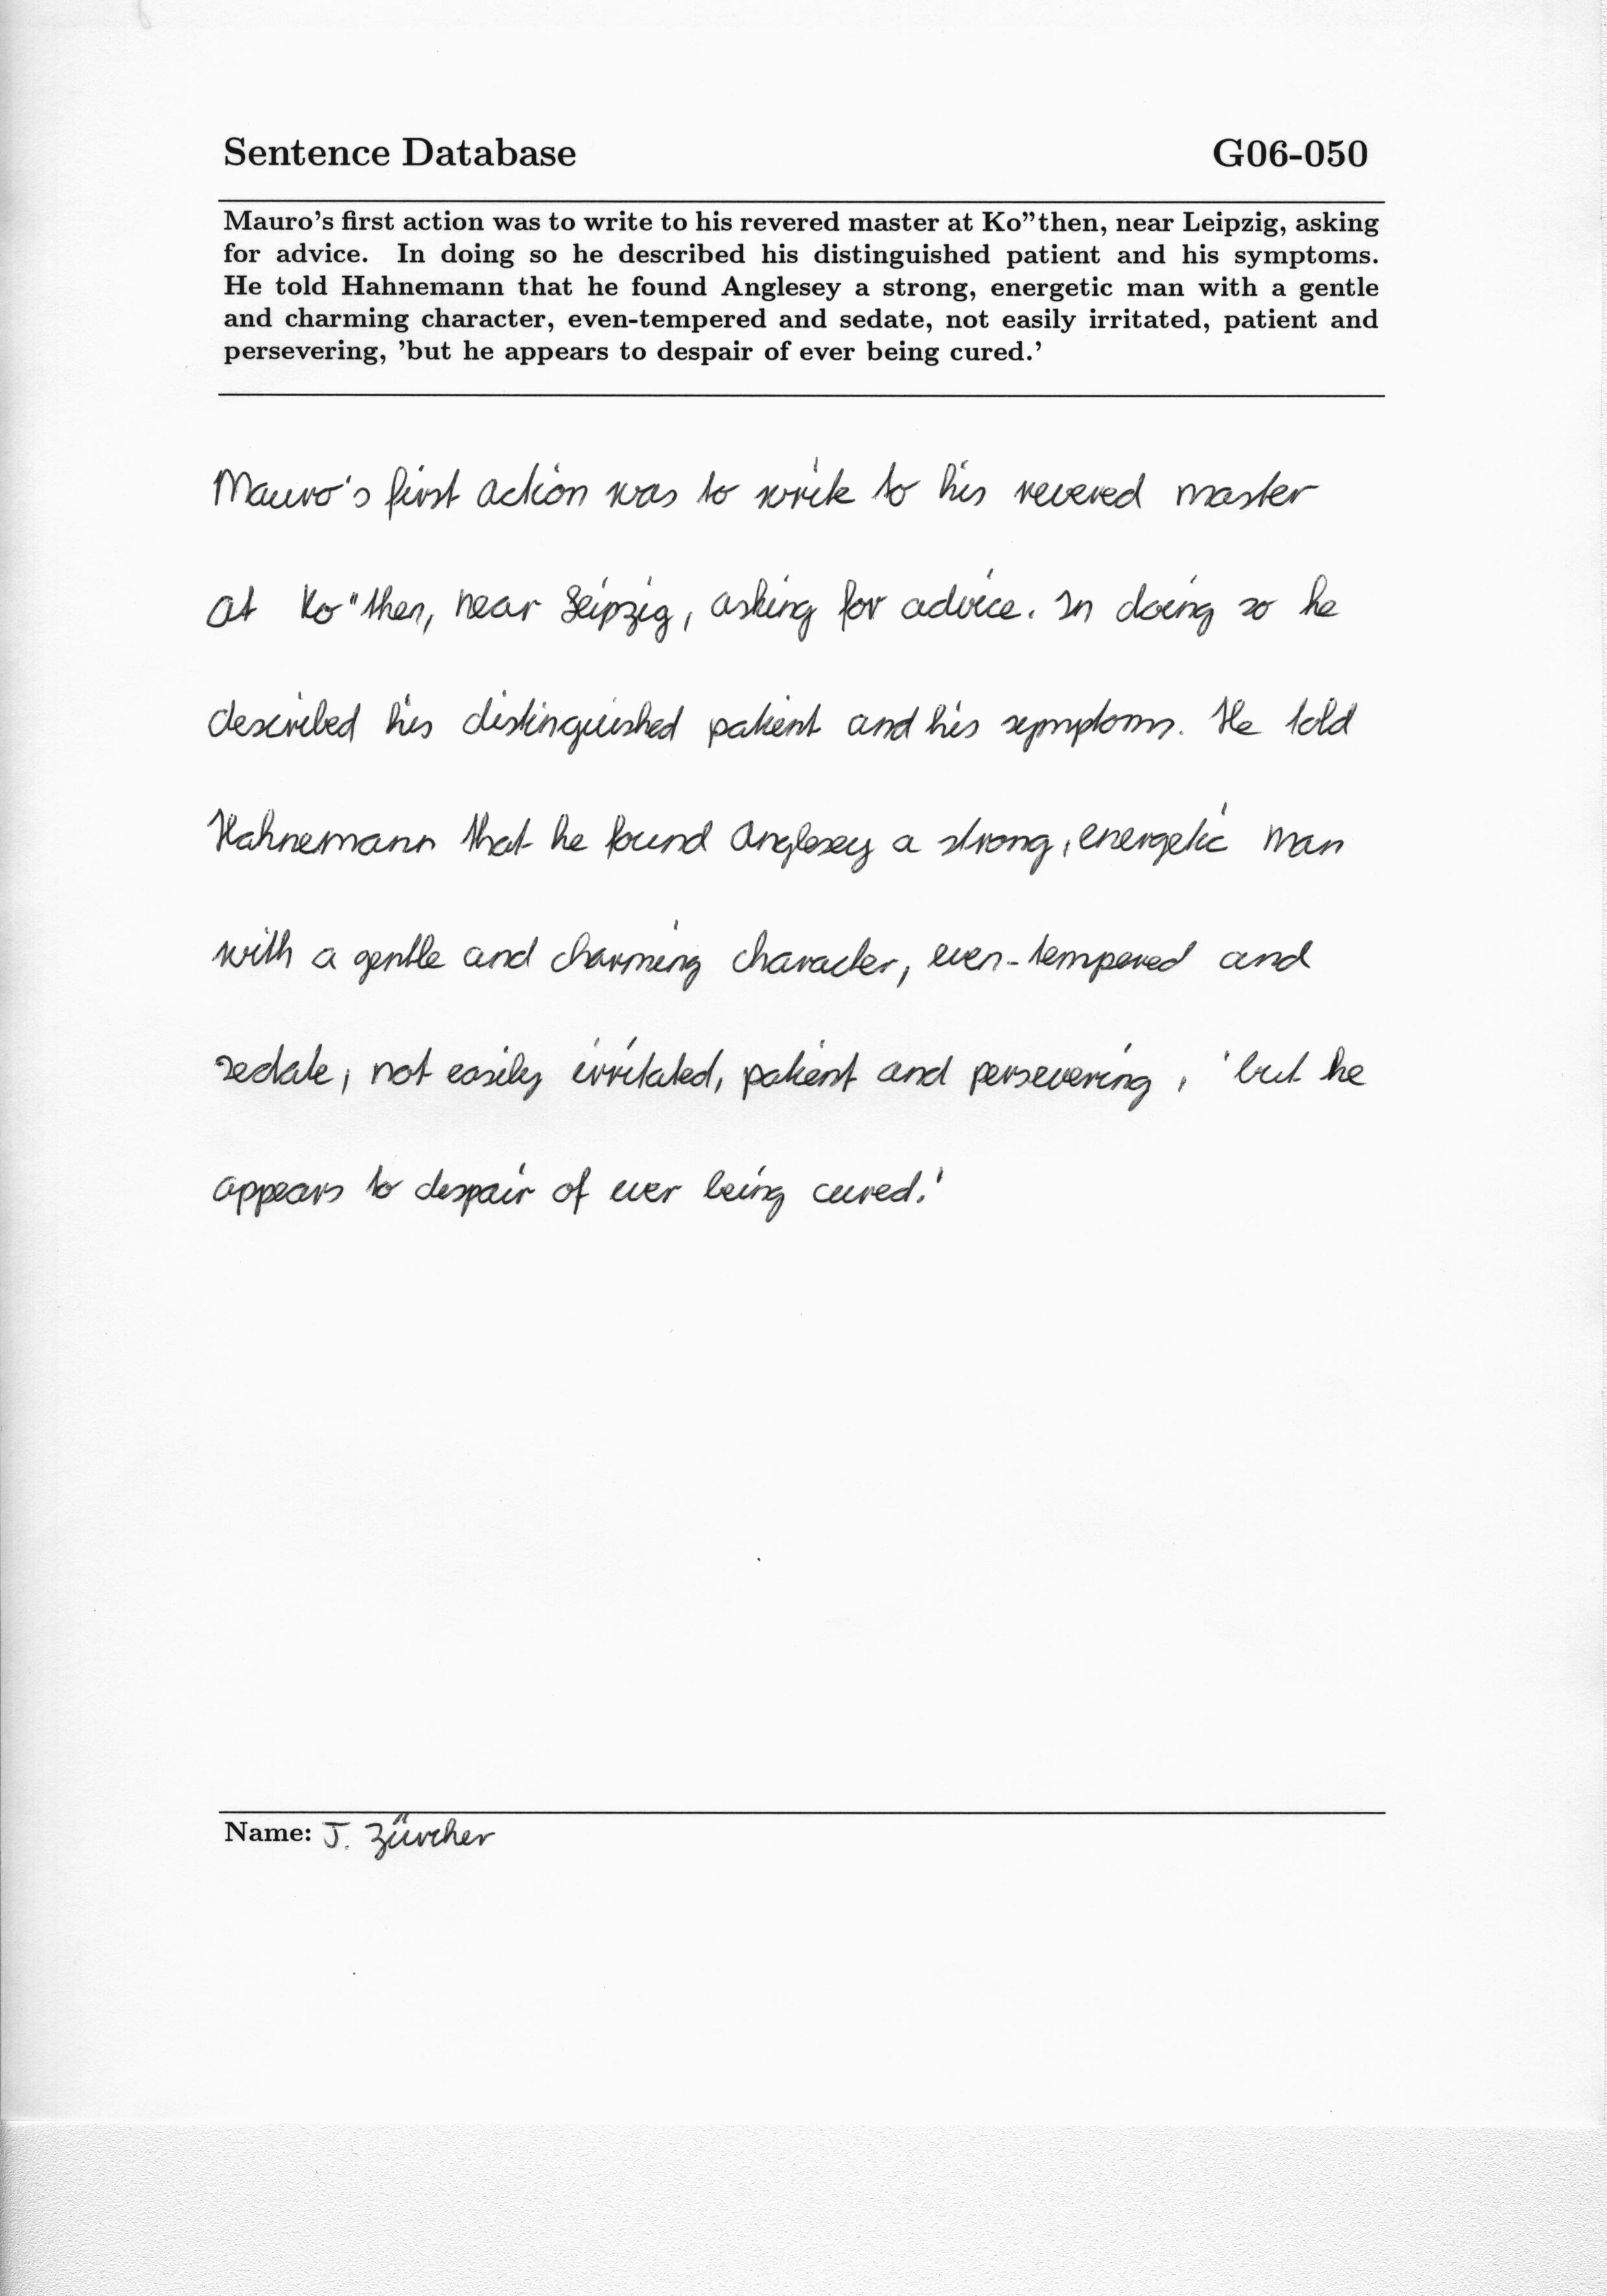 Sentence Database G06-050
Mauro's first action was to write to his revered master at Ko"then, near Leipzig, asking
for advice. In doing so he described his distinguished patient and his symptoms.
He told Hahnemann that he found Anglesey a strong, energetic man with a gentle
and charming character, even-tempered and sedate, not easily irritated, patient and
persevering, 'but he appears to despair of ever being cured.'
Mauro's first action was to write to his revered master
at Ko"then, near Leipzig, asking for advice. In doing so he
described his distinguished patient and his symptoms. He told
Hahnemann that he found Anglesey a strong, energetic man
with a gentle and charming character, even-tempered and
sedate, not easily irritated, patient and persevering, 'but he
appears to despair of ever being cured.'
Name: J. Zürcher